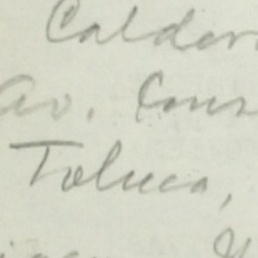 Calder
Av. Cons
Toluca,